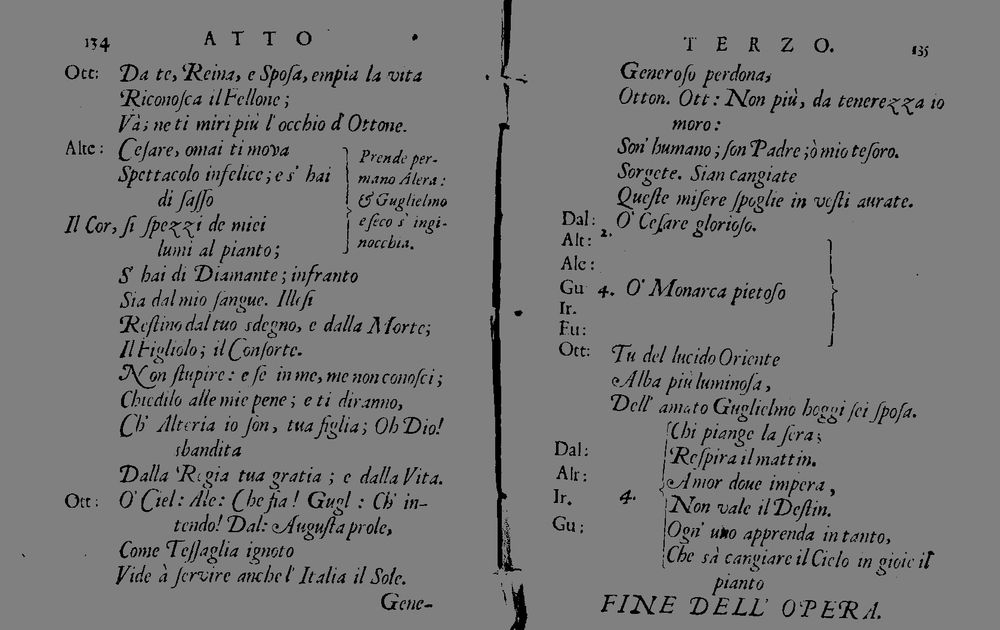 134 ATTO
Ott: Da te, Reina, e Sposa, empia la vita
Riconosca il Fellone;
Và; ne ti miri più l'occhio d'Ottone.
Alte: Cesare, omai ti mova
Spettacolo infelice; e s' hai
di sasso
Il Cor, si spezzi de miei
lumi al pianto;
Prende per-
mano Alera:
& Guglielmo
e seco s' ingi-
nocchia.
S' hai di Diamante; infranto
Sia dal mio sangue. Illesi
Restino dal tuo sdegno, e dalla Morte;
Il Figliolo; il Consorte.
Non stupire: e se in me, me non conosci;
Chiedilo alle mie pene; e ti diranno,
Ch' Alteria io son, tua figlia; Oh Dio!
sbandita
Dalla Regia tua gratia; e dalla Vita.
Ott: O' Ciel: Ale: Che fia! Gugl: Ch' in-
tendo! Dal: Augusta prole,
Come Tessaglia ignoto
Vide à servire anche l' Italia il Sole.
Gene-
TERZO. 135
Generoso perdona;
Otton. Ott: Non più, da tenerezza io
moro:
Son' humano; son Padre; ò mio tesoro.
Sorgete. Sian cangiate
Queste misere spoglie in vesti aurate.
Dal: O' Cesare glorioso.
Alt: 2.
Ale:
Gu 4. O' Monarca pietoso
Ir.
Fu:
Ott: Tu del lucido Oriente
Alba più luminosa,
Dell' amato Guglielmo hoggi sei sposa.
Chi piange la sera;
Dal: Respira il mattin.
Alt: Amor doue impera,
Ir. 4. Non vale il Destin.
Gu: Ogn' uno apprenda in tanto,
Che sà cangiare il Cielo in gioie il
pianto
FINE DELL' OPERA.